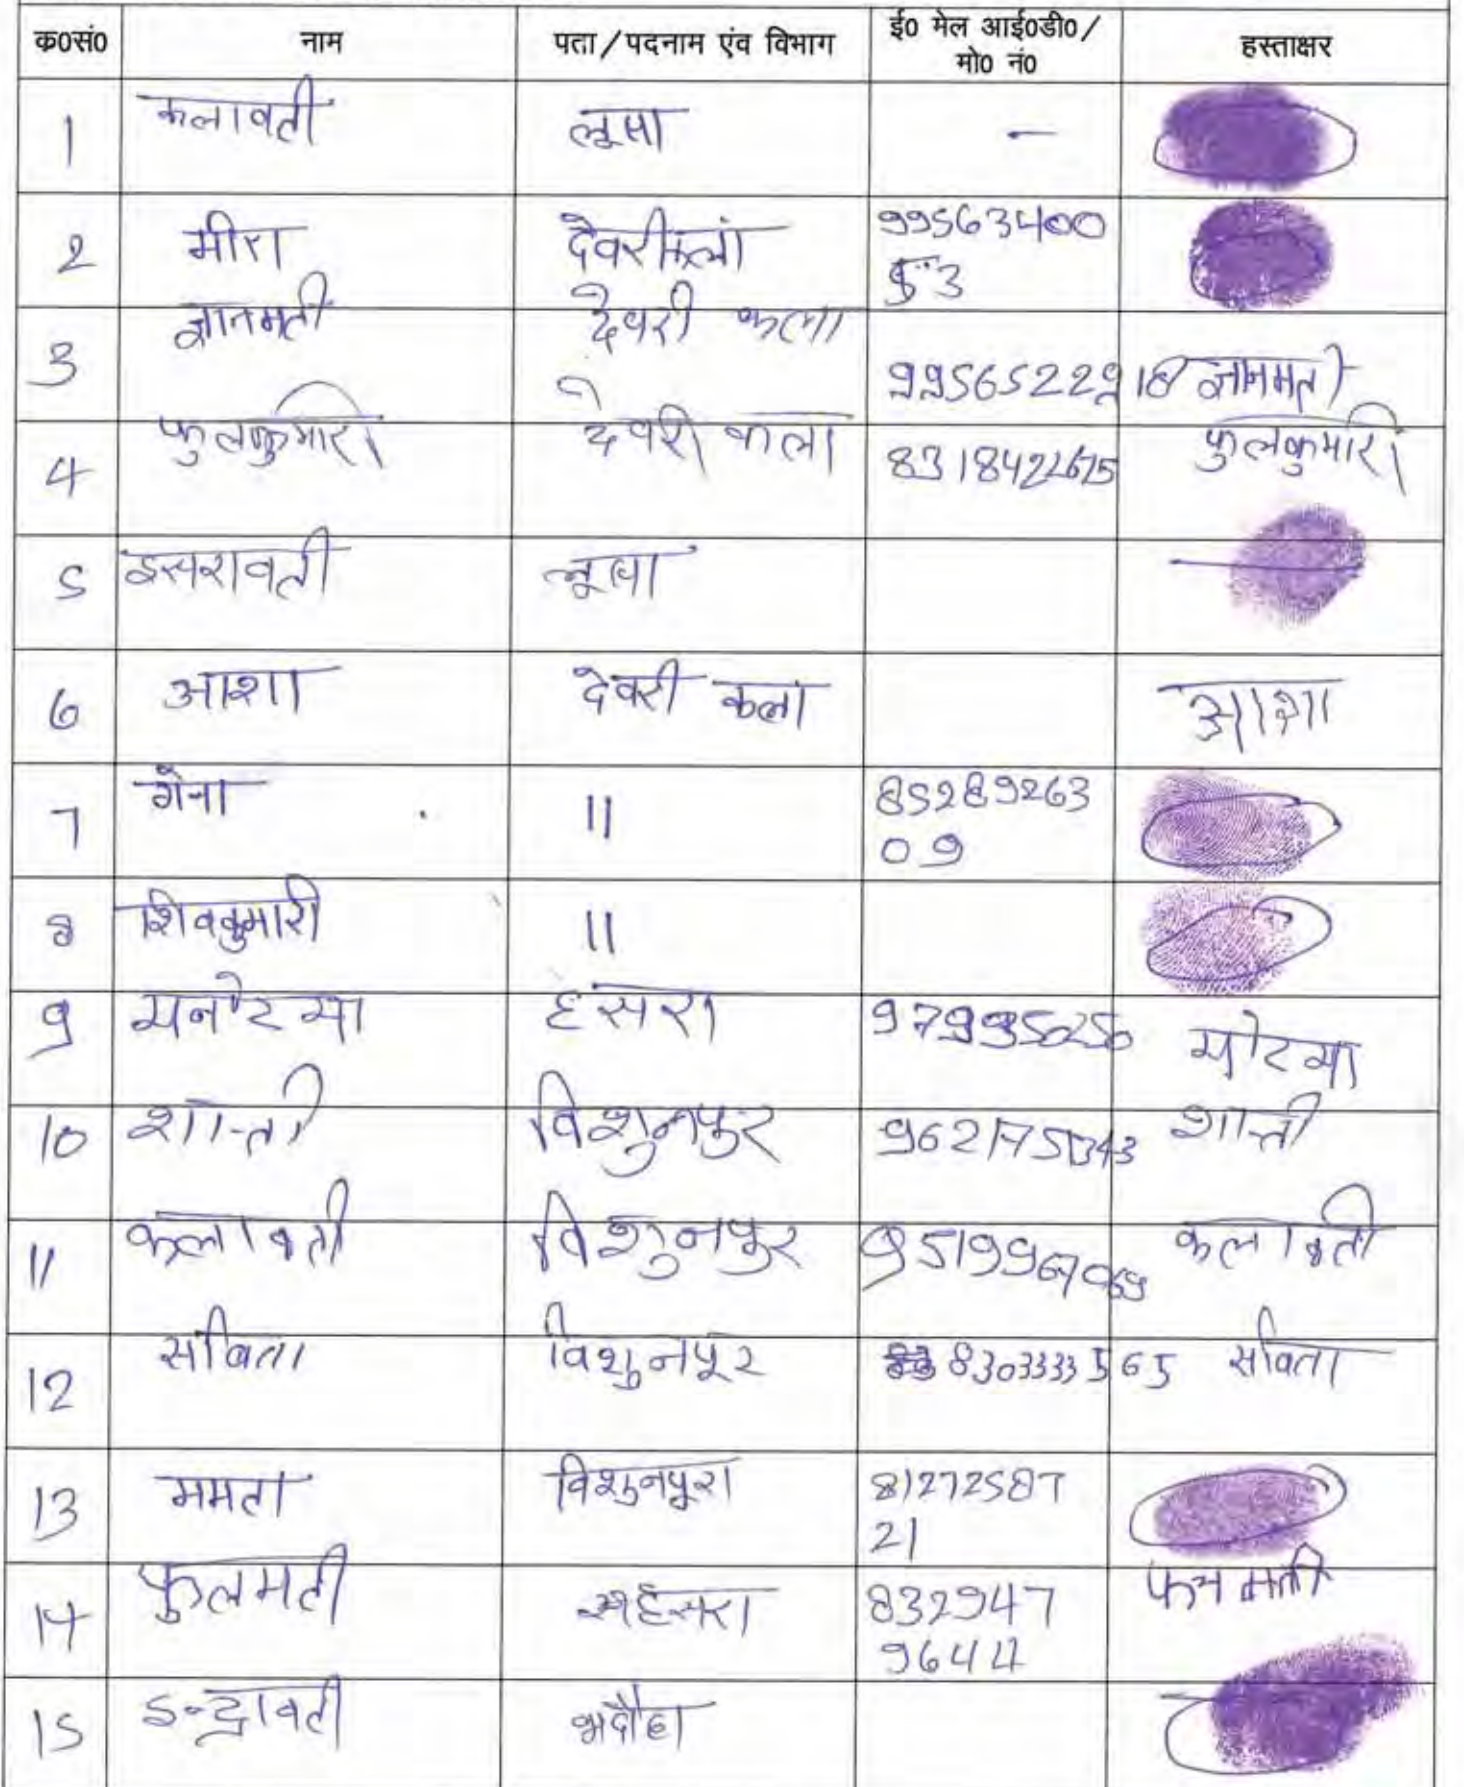 क0सं0 नाम पता/पदनाम एंव विभाग ई0 मेल आई0डी0/ मो0 नं0 हस्ताक्षर
1 कलावती लूसा —
2 मीरा देवरीकलां 99563400
53
3 ज्ञानमती देवरी कला 9956522918 ज्ञानमती
4 फुलकुमारी देवरी कला 8318422675 फुलकुमारी
5 इसरावती लूषा
6 आशा देवरी कला आशा
7 गेना 11 85289263
09
8 शिवकुमारी 11
9 मनोरमा हंसरा मोरमा
10 शान्ती विशुनपुर शान्ती
11 कलावती विशुनपुर कलावती
12 सविता विशुनपूर 8303333565 सविता
13 ममता विशुनपूरा 81272587
21
14 फुलमती 832947
9644
15 इन्द्रावती भदौहा